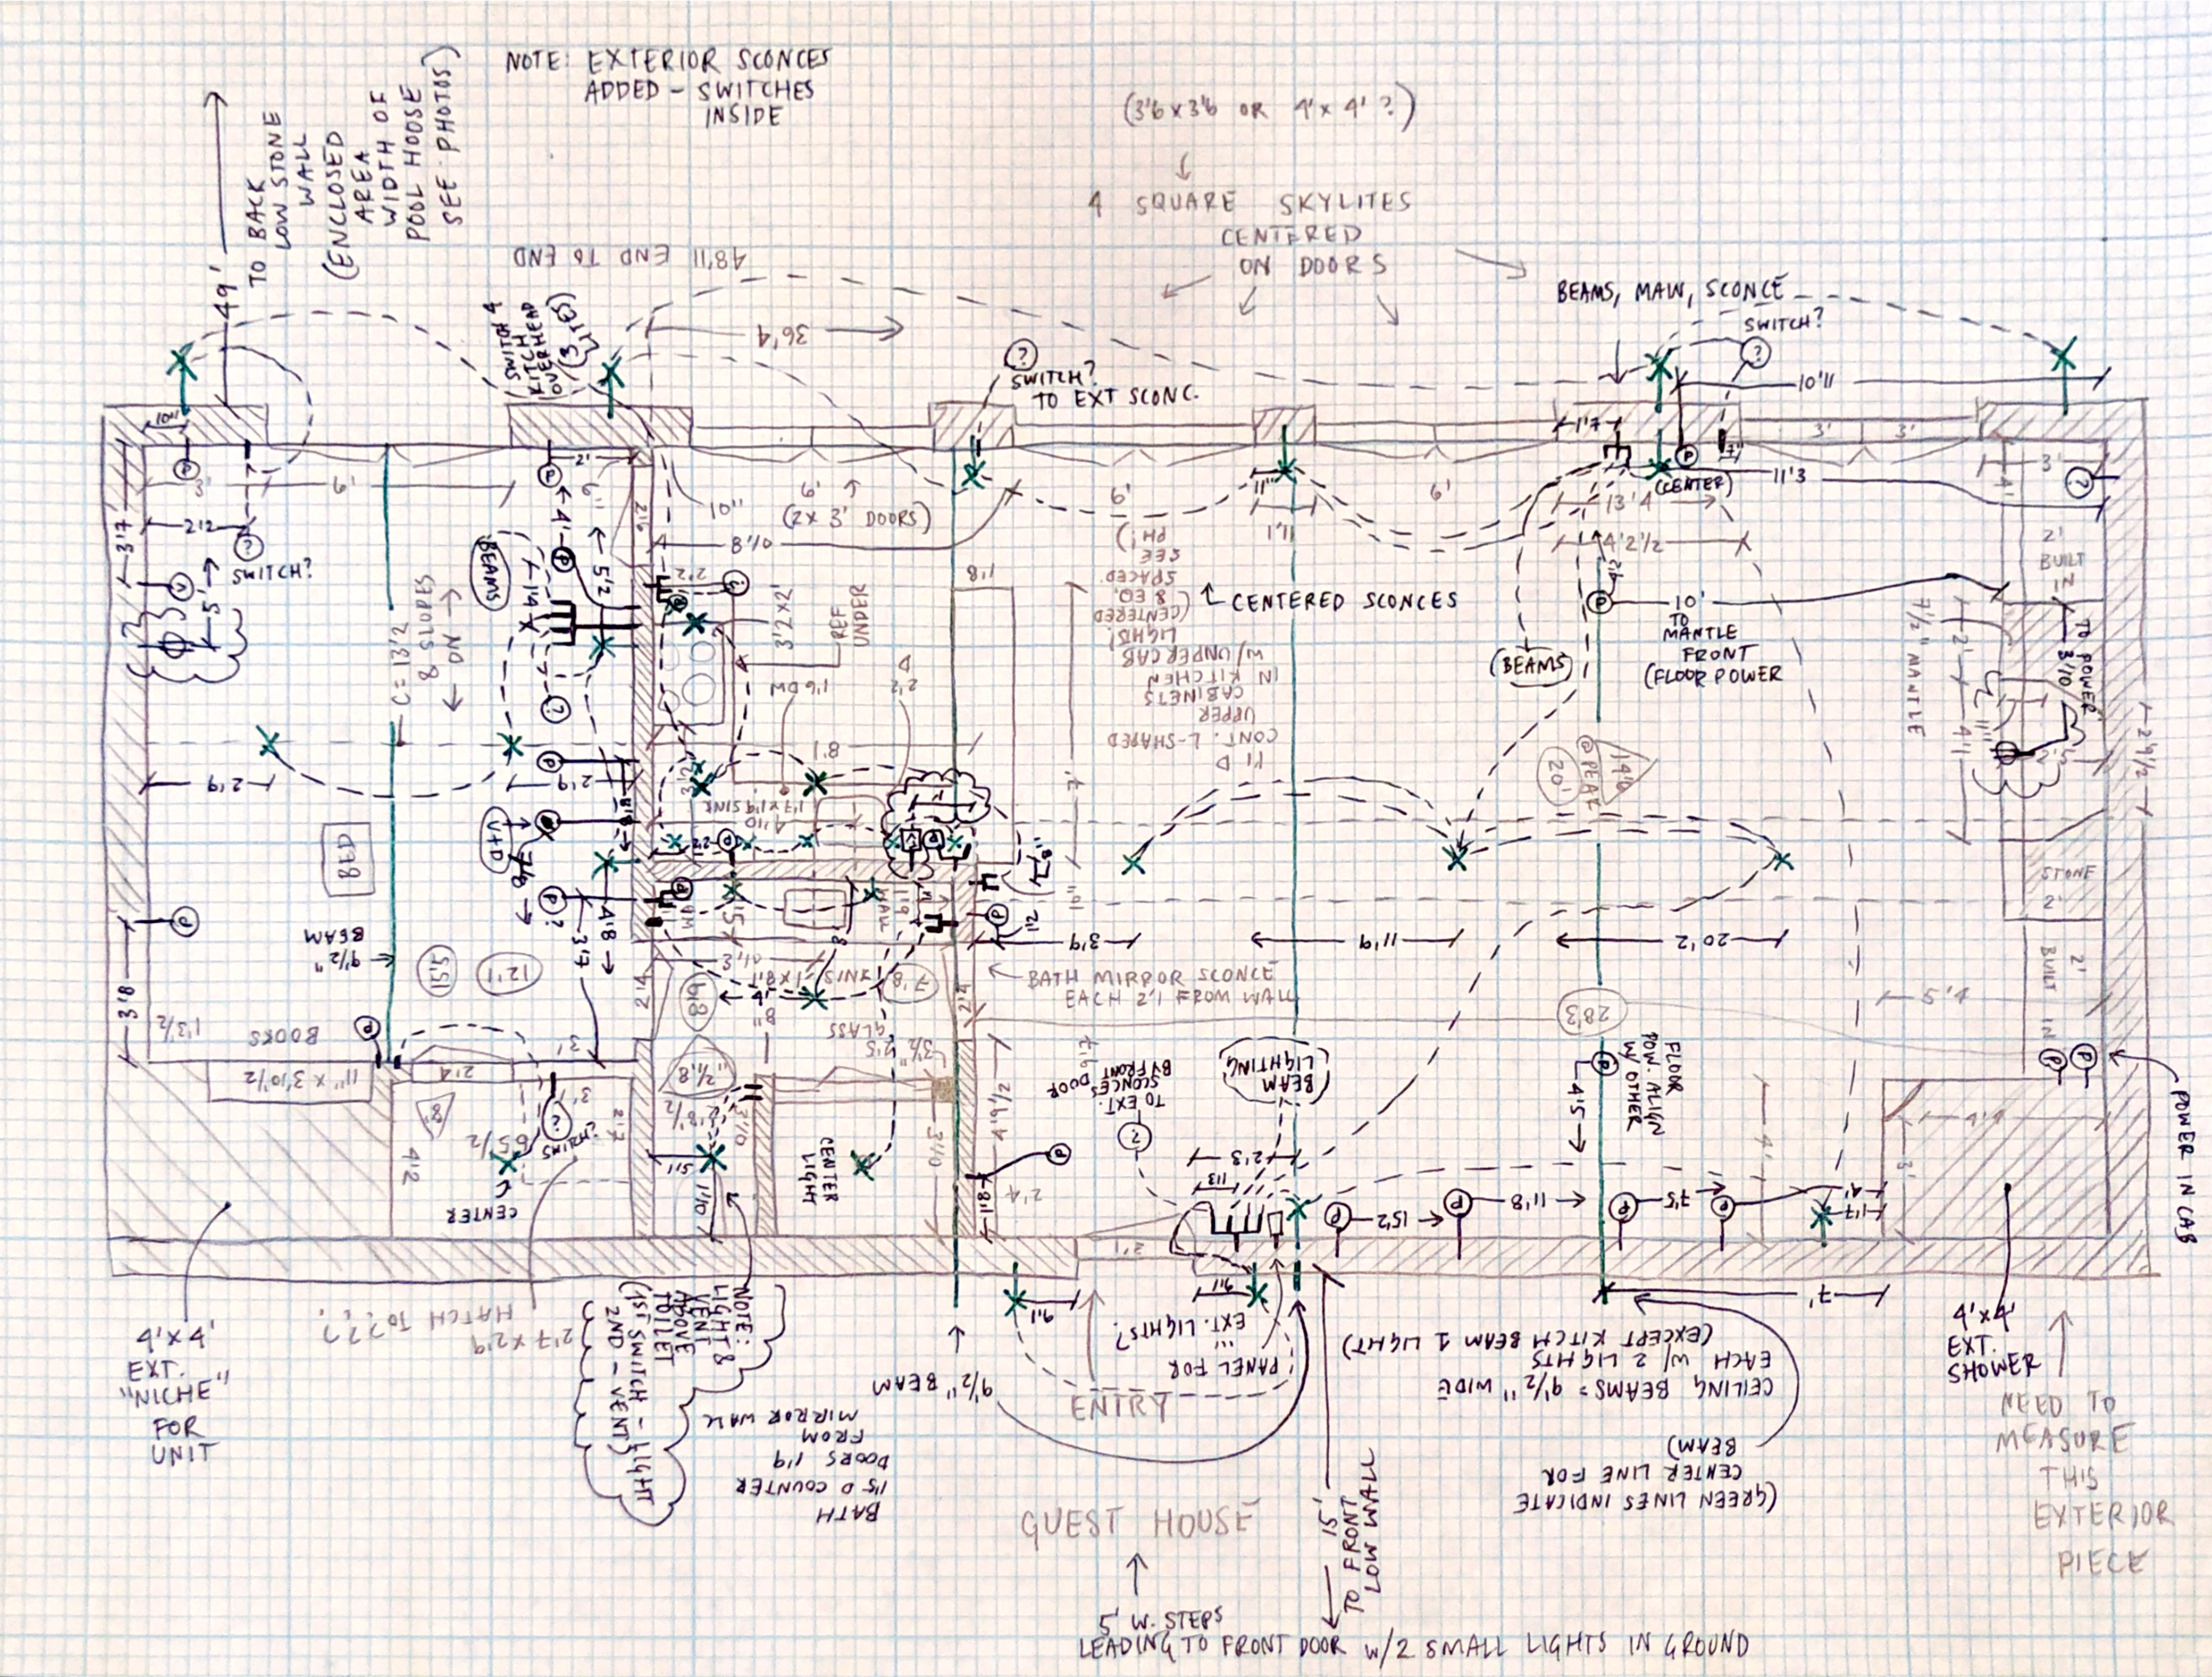 NOTE: EXTERIOR SCONCES
ADDED - SWITCHES
INSIDE
49'
TO BACK
LOW STONE
WALL
(ENCLOSED
AREA
WIDTH OF
POOL HOOSE
SEE PHOTOS)
(3'6 x 3'6 OR 4' x 4' ?)
4 SQUARE SKYLITES
CENTERED
ON DOORS
48'11 END TO END
36'4
SWITCH 4
KITCH
OVERHEAD
(3 LITES)
?
SWITCH?
TO EXT SCONC.
BEAMS, MAW, SCONCE
SWITCH?
?
10'11
10"
2'
1'7
7"
3'
3'
P
3'
6'
P
6"
2'6
10"
6'
(2 x 3' DOORS)
6'
11"
1'1
6'
P
(CENTER)
11'3
13'4
3'
4'
?
3'7
2'2
?
SWITCH?
4'
5'2
BEAMS
8'10
4'2 1/2
2'
BUILT
IN
P
5'
1'4
2'2
?
3'2 x 2'
REF
UNDER
1'8
CENTERED SCONCES
PH!)
SEE
SPACED.
& EQ.
(CENTERED
LIGHTS!
W/ UNDERCAB
IN KITCHEN
CABINETS
UPPER
CONT. L-SHAPED
1'1 D
P
10'
TO
MANTLE
FRONT
(FLOOR POWER
(BEAMS)
7 1/2" MANTLE
2'
TO
POWER
3'10
C = 13'2
& SLOPES
ON
?
1'6 DW
2'2
D
8'1
4'1
2'9 1/2
2'9
P
2'9
1'7 x 1'9 SINK
4'10
7'
@ PEAK
20'
14'6
BED
V+D
7'6
P
STONE
2'
P
P?
4'8
3'7
P
1'2
3'9
11'9
20'2
9 1/2"
BEAM
5'5
12'1
2'4
3'10
7'8
2'4
BATH MIRROR SCONCE
EACH 2'1 FROM WALL
4'
8"
GLASS
2'5
3 1/2"
28'3
5'4
2'
BUILT IN
3'8
1'3 1/2
BOOKS
P
3'
11" x 3'10 1/2
2'4
8'
3'
2'7
6'5 1/2
4'2
?
CENTER
5'11
1'10
3'10
CENTER
LIGHT
3'10
4'9 1/2
1'8
P
2'4
9'7
TO EXT.
SCONCES DOOR
BY FRONT
?
BEAM
LIGHTING
2'3
1'3
P
4'5
FLOOR
POW. ALIGN
W/ OTHER
P P
POWER IN CAB
4'4
4'
3'
P
15'2
P
11'8
P
7'5
P
4'
1'7
3'1
9"
9"
7'
4' x 4'
EXT.
"NICHE"
FOR
UNIT
HATCH TO???
2'7 x 2'9
NOTE:
LIGHT &
VENT
ABOVE
TOILET
(1ST SWITCH - LIGHT
2ND - VENT)
BATH
1'5 D COUNTER
DOORS 1'9
FROM
MIRROR WALL
9 1/2" BEAM
ENTRY
PANEL FOR
...
EXT. LIGHTS?
CEILING BEAMS = 9 1/2" WIDE
EACH W/ 2 LIGHTS
(EXCEPT KITCH BEAM 1 LIGHT)
(GREEN LINES INDICATE
CENTER LINE FOR
BEAM)
4' x 4'
EXT.
SHOWER
NEED TO
MEASURE
THIS
EXTERIOR
PIECE
15'
TO FRONT
LOW WALL
GUEST HOUSE
5' W. STEPS
LEADING TO FRONT DOOR W/2 SMALL LIGHTS IN GROUND